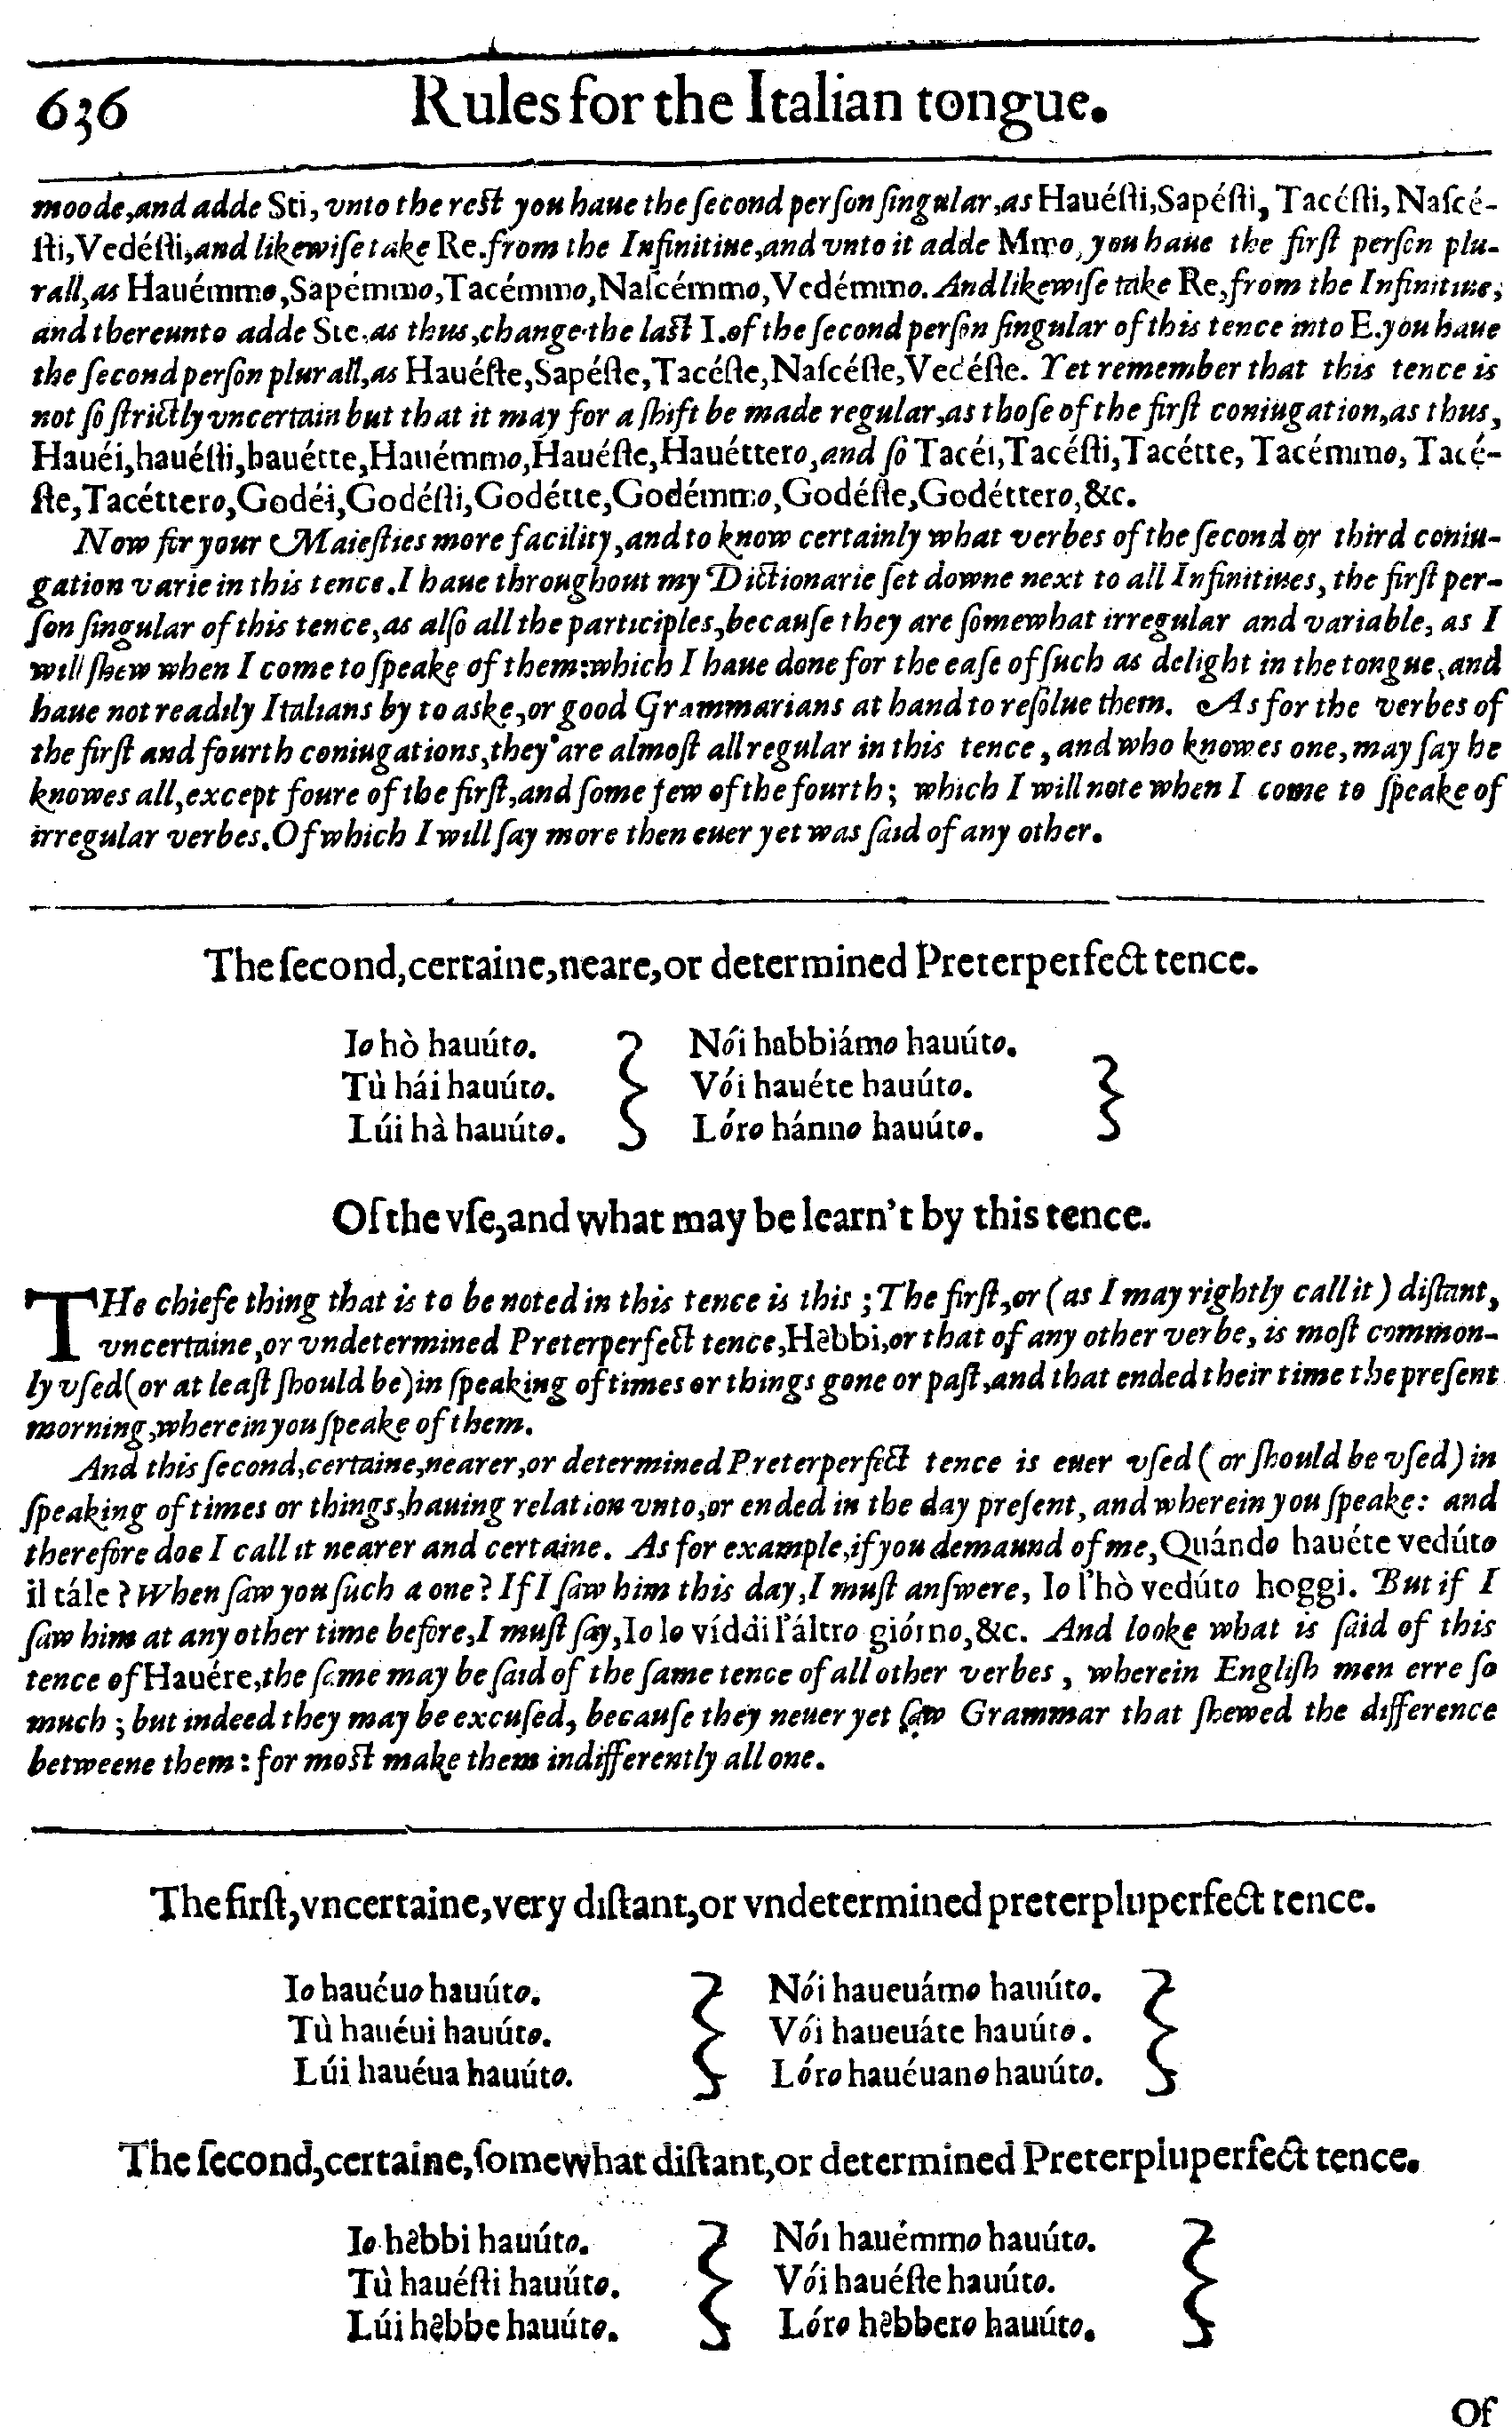 636
Rules for the Italian tongue.
moode,and adde Sti, vnto the rest you haue the ſecond perſon ſingular,as Hauéſti,Sapéſti, Tacéſti, Naſcé-
ſti,Vedéſti,and likewiſe take Re.from the Infinitiue,and vnto it adde Mmo,you haue the firſt perſon plu-
rall,as Hauémmo,Sapémmo,Tacémmo,Naſcémmo,Vedémmo.And likewiſe take Re,from the Infinitiue,
and thereunto adde Ste.as thus,change the last I.of the ſecond perſon ſingular of this tence into E.you haue
the ſecond perſon plurall,as Hauéſte,Sapéſte,Tacéſte,Naſcéſte,Vedéſte. Yet remember that this tence is
not ſo ſtrictly vncertain but that it may for a ſhift be made regular,as thoſe of the firſt coniugation,as thus,
Hauéi,hauéſti,hauétte,Hauémmo,Hauéſte,Hauéttero,and ſo Tacéi,Tacéſti,Tacétte, Tacémmo, Tacé-
ſte,Tacéttero,Godéi,Godéſti,Godétte,Godémmo,Godéſte,Godéttero,&c.
Now for your Maieſties more facility,and to know certainly what verbes of the ſecond or third coniu-
gation varie in this tence.I haue throughout my Dictionarie ſet downe next to all Infinitiues, the firſt per-
ſon ſingular of this tence,as alſo all the participles,becauſe they are ſomewhat irregular and variable, as I
will ſhew when I come to ſpeake of them:which I haue done for the eaſe of ſuch as delight in the tongue,and
haue not readily Italians by to aske,or good Grammarians at hand to reſolue them. As for the verbes of
the firſt and fourth coniugations,they are almoſt all regular in this tence, and who knowes one,may ſay he
knowes all,except foure of the firſt,and ſome few of the fourth; which I will note when I come to ſpeake of
irregular verbes.Of which I will ſay more then euer yet was ſaid of any other.
The ſecond,certaine,neare,or determined Preterperfect tence.
Io hò hauúto. Nói habbiámo hauúto.
Tù hái hauúto. Vói hauéte hauúto.
Lúi hà hauúto. Lóro hánno hauúto.
Of the vſe,and what may be learn't by this tence.
THe chiefe thing that is to be noted in this tence is this ; The firſt,or (as I may rightly call it) diſtant,
vncertaine,or vndetermined Preterperfect tence,Hêbbi,or that of any other verbe, is moſt common-
ly vſed(or at leaſt ſhould be)in ſpeaking of times or things gone or paſt,and that ended their time the preſent
morning,wherein you ſpeake of them.
And this ſecond,certaine,nearer,or determined Preterperfect tence is euer vſed (or ſhould be vſed) in
ſpeaking of times or things,hauing relation vnto,or ended in the day preſent, and wherein you ſpeake: and
therefore doe I call it nearer and certaine. As for example,if you demaund of me,Quándo hauéte vedúto
il tále ? When ſaw you ſuch a one? If I ſaw him this day,I muſt anſwere, Io l'hò vedúto hoggi. But if I
ſaw him at any other time before,I muſt ſay,Io lo víddi l'áltro giórno,&c. And looke what is ſaid of this
tence of Hauére,the ſame may be ſaid of the ſame tence of all other verbes, wherein Engliſh men erre ſo
much ; but indeed they may be excuſed, becauſe they neuer yet ſaw Grammar that ſhewed the difference
betweene them: for most make them indifferently all one.
The firſt,vncertaine,very diſtant,or vndetermined preterpluperfect tence.
Io hauéuo hauúto. Nói haueuámo hauúto.
Tù hauéui hauúto. Vói haueuáte hauúto.
Lúi hauéua hauúto. Lóro hauéuano hauúto.
The ſecond,certaine,ſomewhat diſtant,or determined Preterpluperfect tence.
Io hêbbi hauúto. Nói hauémmo hauúto.
Tù hauéſti hauúto. Vói hauéſte hauúto.
Lúi hêbbe hauúto. Lóro hêbbero hauúto.
Of